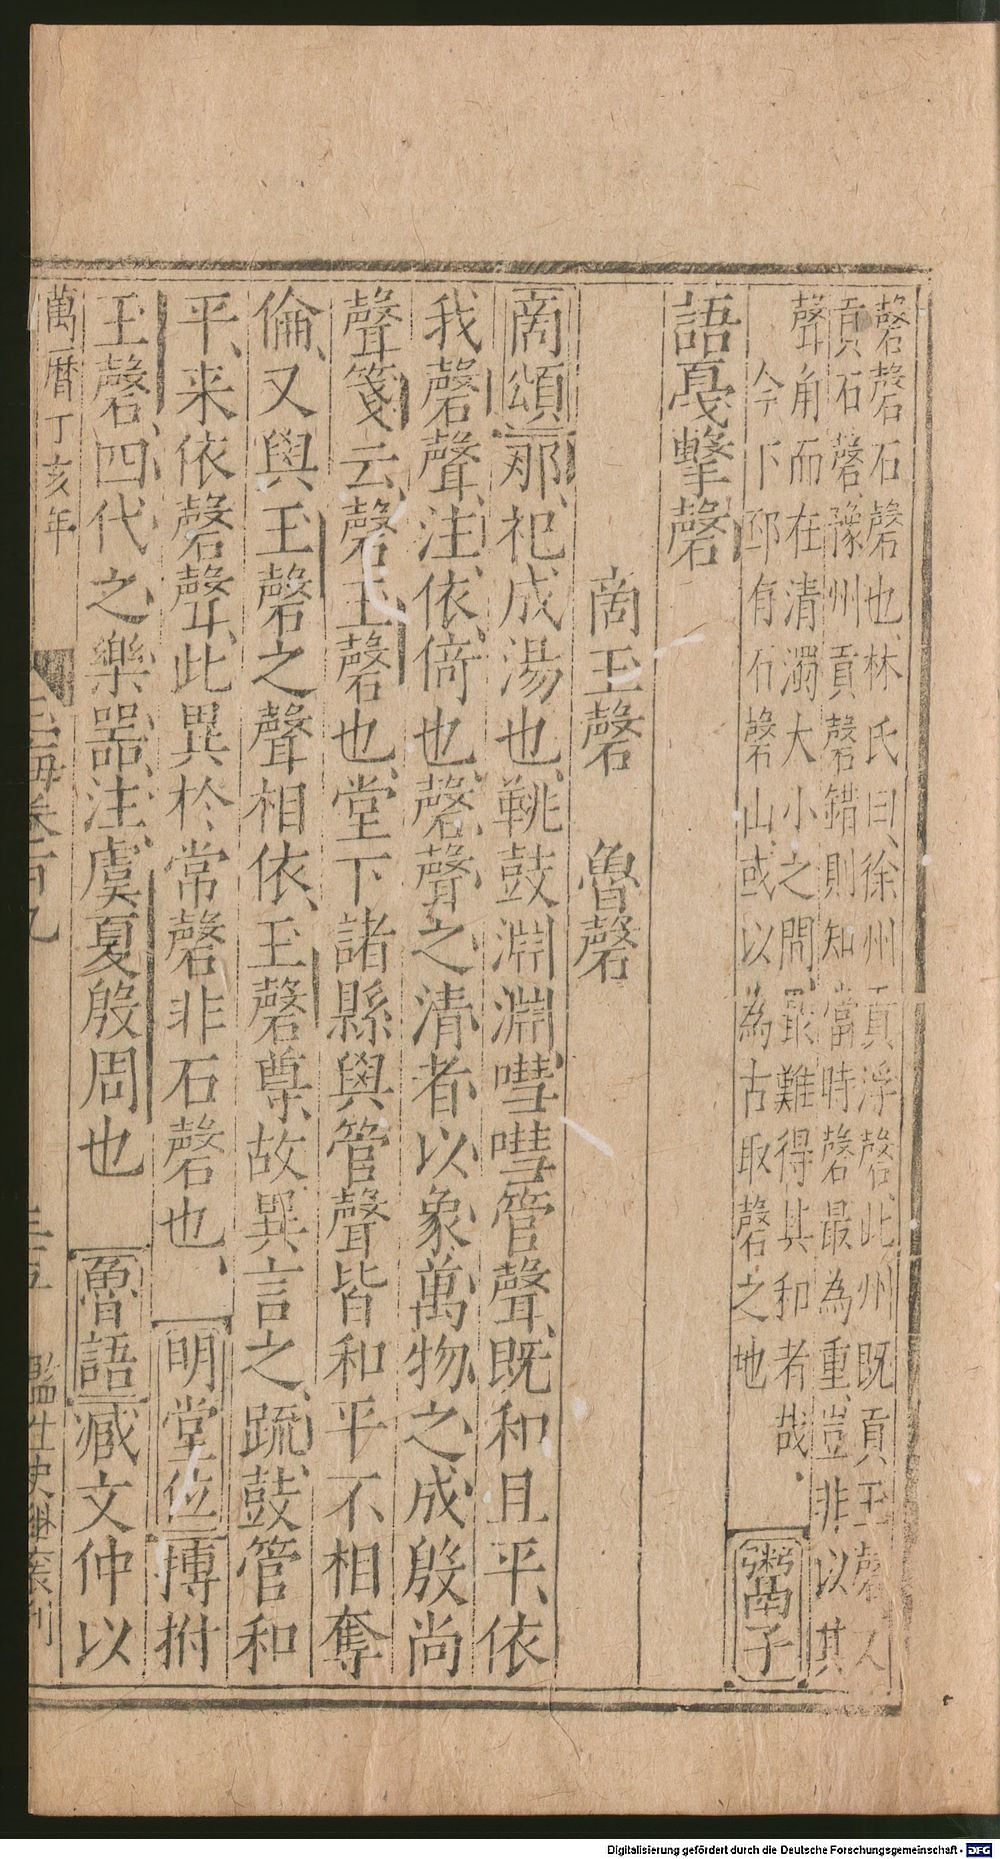 磬磬石磬也林氏曰徐州貢浮磬此州既貢玉磬又
貢石磬豫州貢磬錯則知當時磬最為重豈非以其
聲角而在清濁大小之間最難得其和者哉
今下邳有石磬山或以為古取磬之地
鬻子
語戞擊磬
商玉磬　魯磬
商頌那祀成湯也鞉鼓淵淵嘒嘒管聲既和且平依
我磬聲注依倚也磬聲之清者以象萬物之成殷尚
聲箋云磬玉磬也堂下諸縣與管聲皆和平不相奪
倫又與玉磬之聲相依玉磬尊故異言之疏鼓管和
平来依磬聲此異於常磬非石磬也明堂位搏拊
玉磬四代之樂器注虞夏殷周也　魯語臧文仲以
萬曆丁亥年
玉海卷百九
三五
監生史繼宸刊
Digitalisierung gefördert durch die Deutsche Forschungsgemeinschaft - DFG